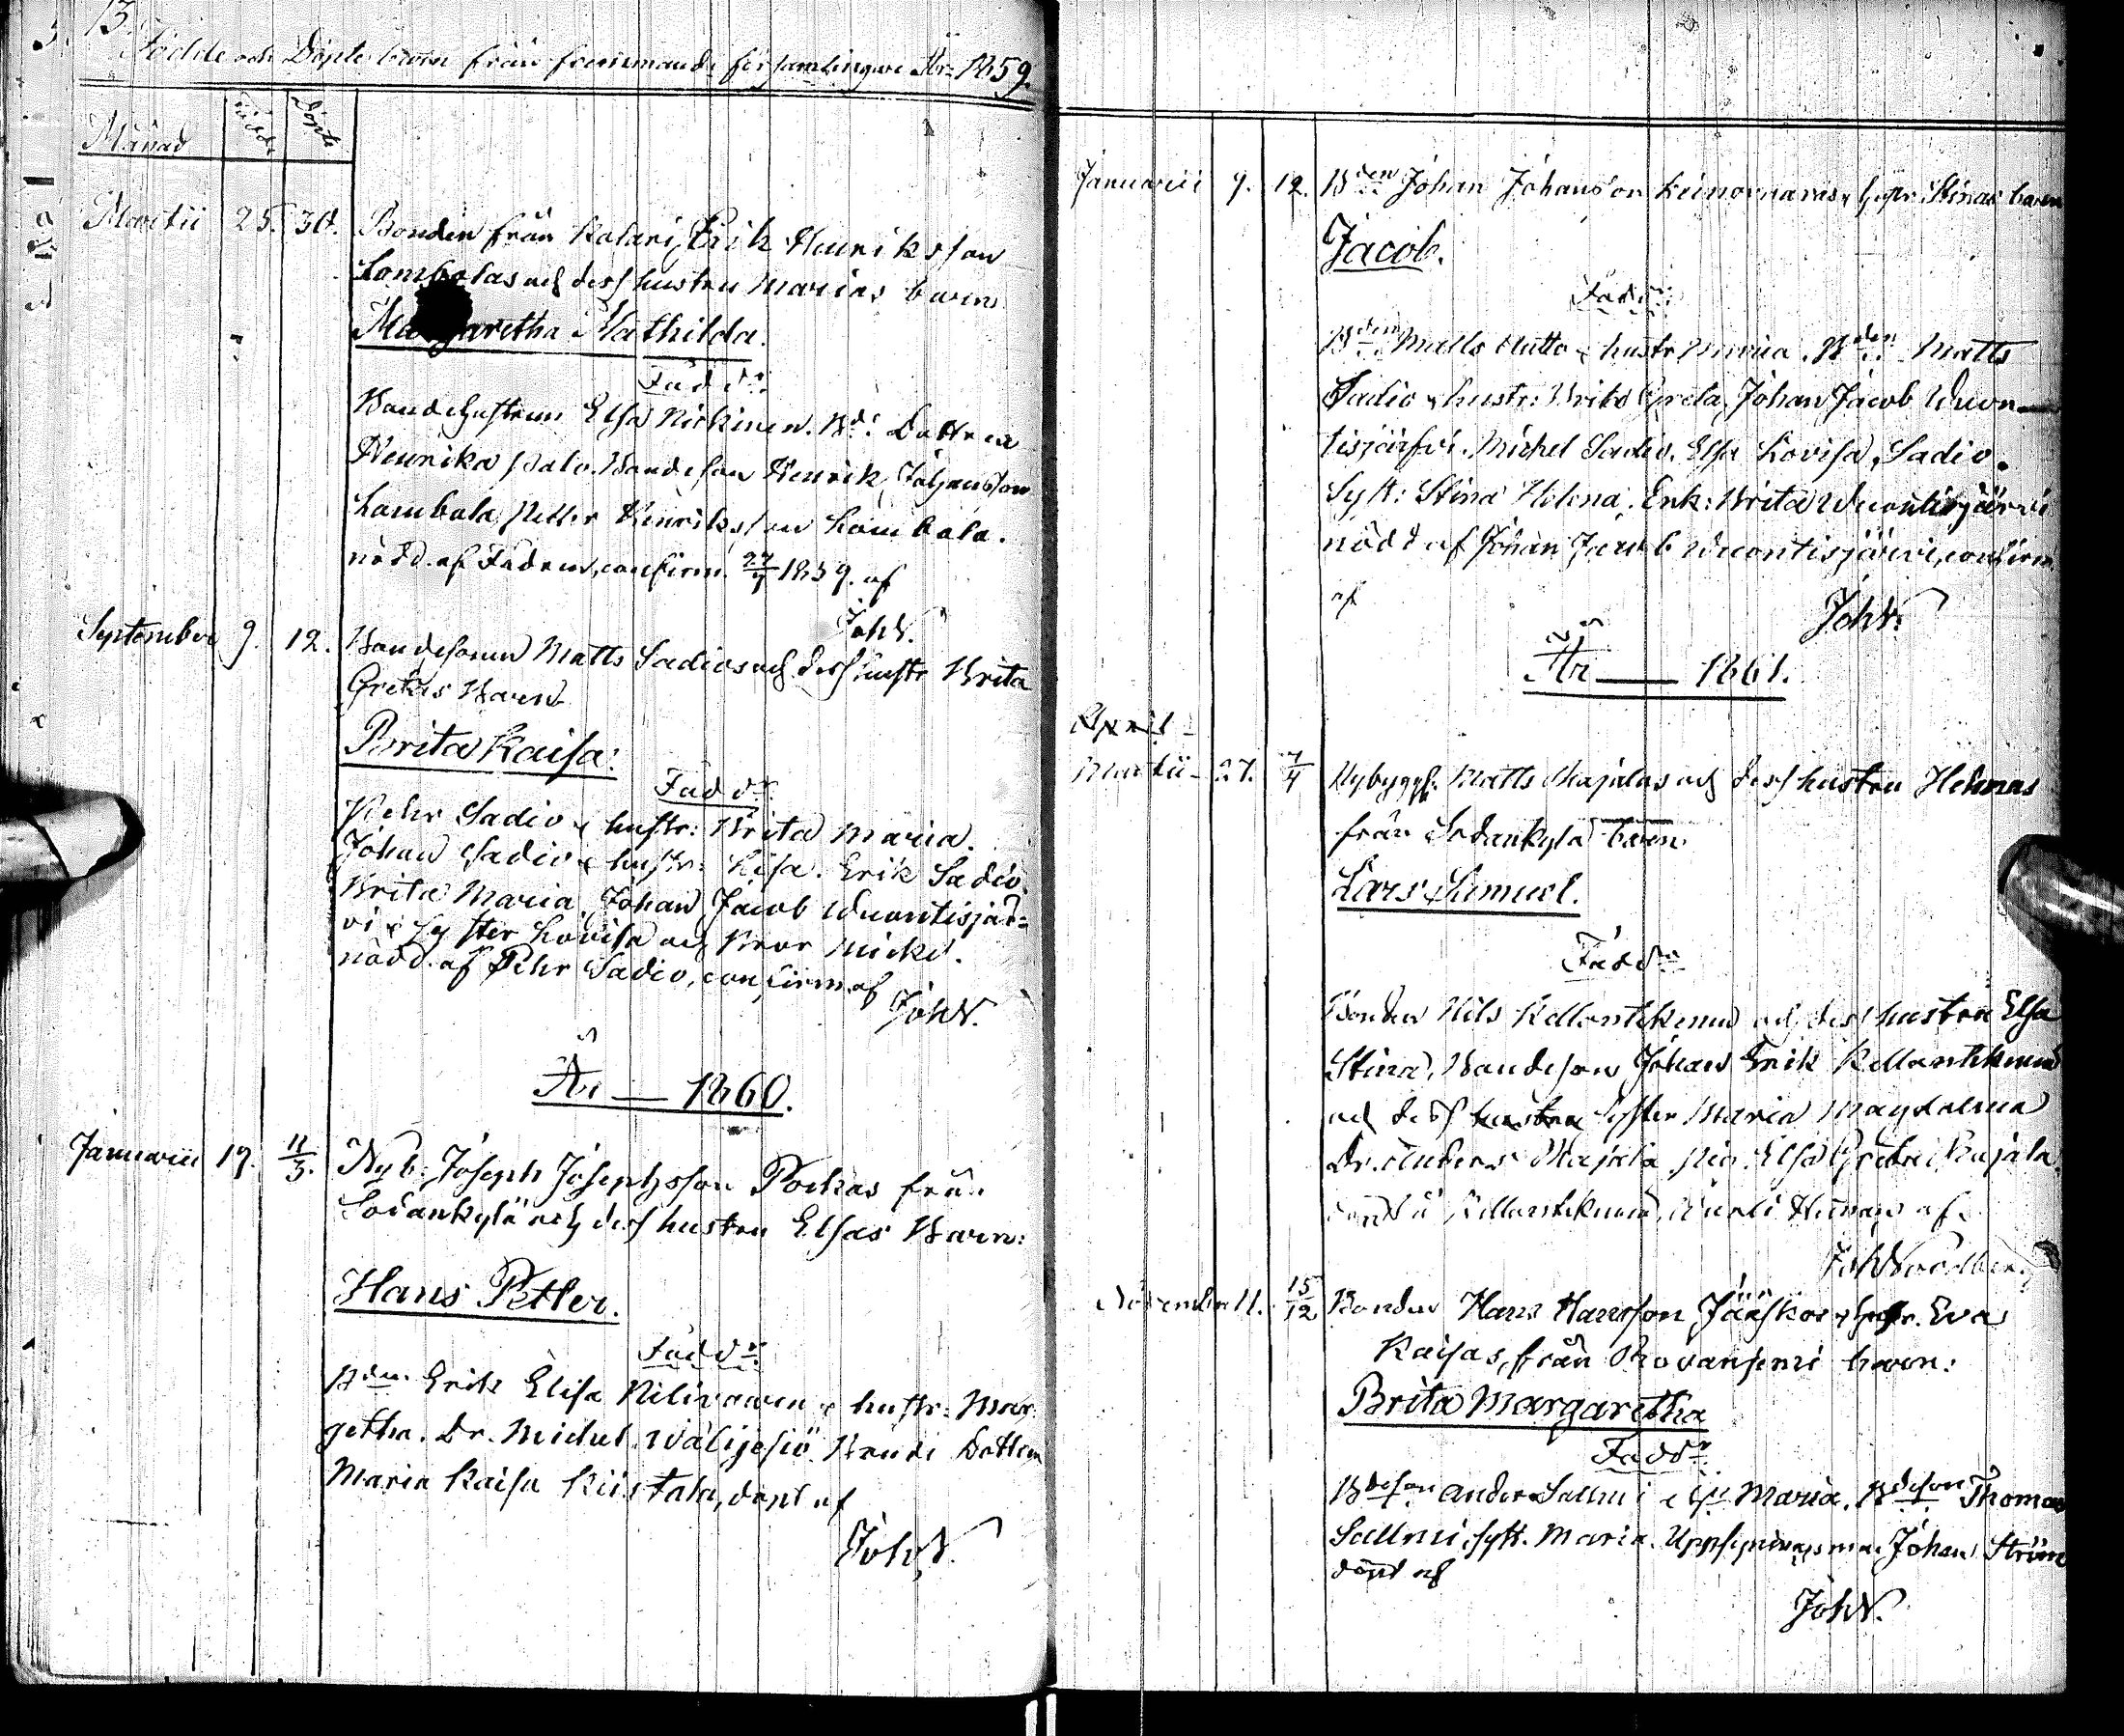 13.
Födde och Döpte barn från fremmande församlingar År 1859.
Månad födde döpte
Martii 25. 30. Bonden från Kolari, Erik Henriksson
Lombolas och dess hustru Marias barn
Margaretha Mathilda.
Fadd:
Bondehustrun Elsa Niskinen. Bd: Dottren
Henrika Palo. Bondeson Henrik Johansson
Lombola, Petter Henriksson Lombola.
nödd. af Fadren, confirm. 27/4 1859. af
JohN.
September 9. 12. Bondesonen Matts Sadios och dess hustr Brita
Gretas Barn
Brita Kaisa.
Fadd:
Pehr Sadio & hustr: Brita Maria.
Johan Sadio & hustr: Lisa. Erik Sadio.
Brita Maria, Johan Jacob Wuontisjär=
vi & Syster Lovisa och Bror Mickel.
nödd. af Pehr Sadio, confirm. af
JohN.
År — 1860.
Januarii 19. 11/3. Nyb: Joseph Josephsson Pockas från
Sodankylä och dess hustru Elsas Barn:
Hans Petter.
Fadd:
Bden Erik Elisa Nilivaara & hustr: Mar
getha. Dr. Michel Wäligesiö. Bonde Dottern
Maria Kaisa Kiistala, döpt af
JohN.
Januarii 9. 12. Bden Johan Johansson Keinovaaras & hustr Stinas barn
Jacob.
Fadd:
Bden Matts Autto & hustr Maria. Bden Matts
Sadio & hustr: Brita Greta, Johan Jacob Wuon
tisjärfvi. Michel Sadio. Elsa Lovisa Sadio.
Syst: Stina Helena. Enk: Brita Wuontisjärvi
nödd af Johan Jacob Wuontisjärvi, confirm
af
JohN.
År — 1861.
April
Martii 27. 7/4 Nybygg. Matts Majalas och dess hustru Helenas
från Sodankylä barn
Lars Samuel.
Fadd:
Bonden Nils Kellontekemä och dess hustru Elsa
Stina, Bondeson Johan Erik Kellontekemä
och dess hustru syster Maria Magdalena
Dr. Anders Majala Pig. Elsa Greta Majala.
döpt i Kellontekemä, af
JohNordberg
November 11. 15/12 Bonden Hans Hansson Jääskos & hustr. Eva
Kaisas, från Rovaniemi barn:
Brita Margaretha
Fadd:
Bdeson Anders Salmi & Maria. Bdeson Thomas
Sallmi, syst. Maria. Uppsyningsman Johan Ström
döpt af
JohN.